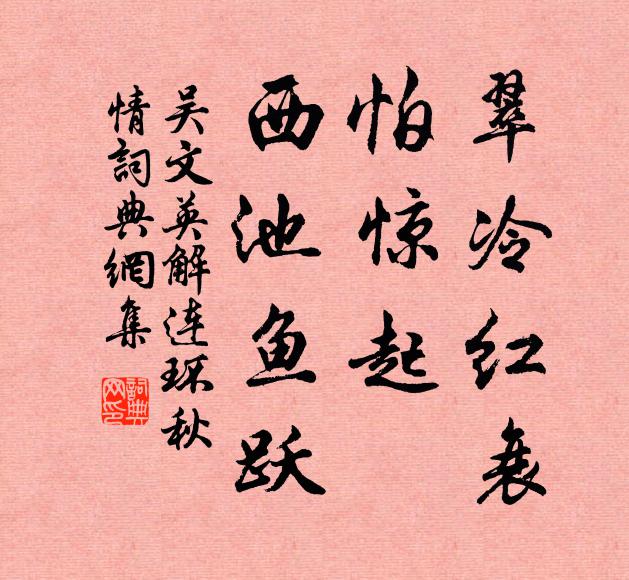 翠冷红衰
怕惊起
西池鱼跃
吴文英解连环秋
情詞典網集
詞典网印